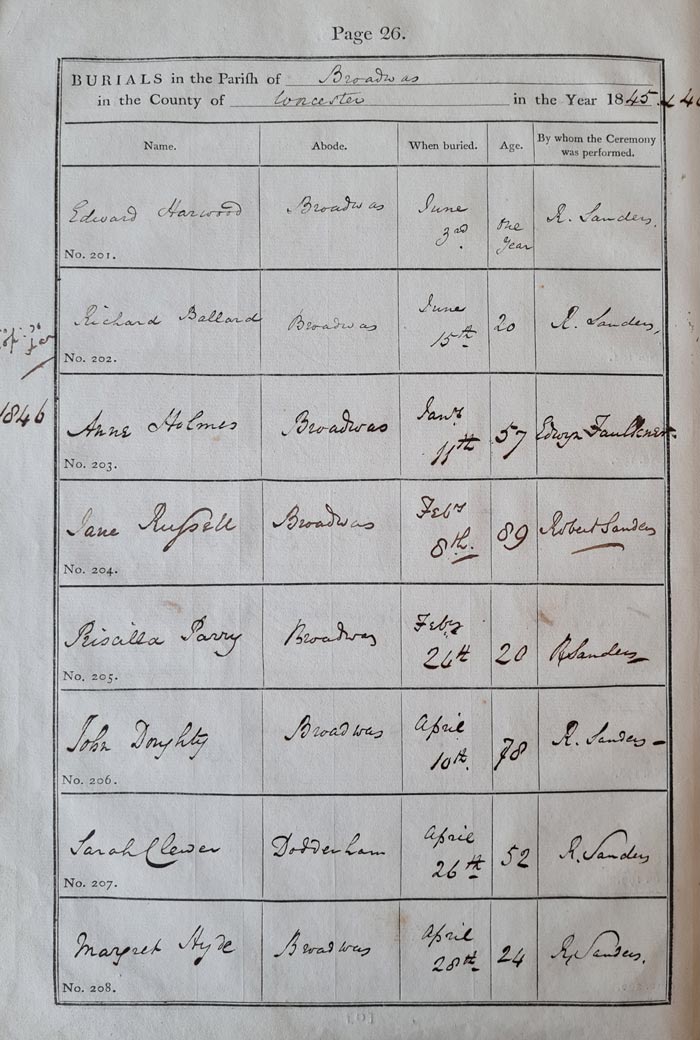 Page 26.
BURIALS in the Parish of Broadwas
in the County of Worcester in the Year 1845 & 46
Name. Abode. When buried. Age. By whom the Ceremony was performed.
Edward Harwood Broadwas June 3rd One Year R. Sanders.
No. 201.
Richard Ballard Broadwas June 15th 20 R. Sanders,
No. 202.
1846
Anne Holmes Broadwas Jany 11th 57 Edwyn Faulkner
No. 203.
Jane Russell Broadwas Feby 8th. 89 Robert Sanders
No. 204.
Priscilla Parry Broadwas Feby 24th 20 R Sanders
No. 205.
John Doughty Broadwas April 10th. 78 R. Sanders
No. 206.
Sarah Clewer Doddenham April 26th 52 R. Sanders
No. 207.
Margret Hyde Broadwas April 28th 24 R. Sanders.
No. 208.